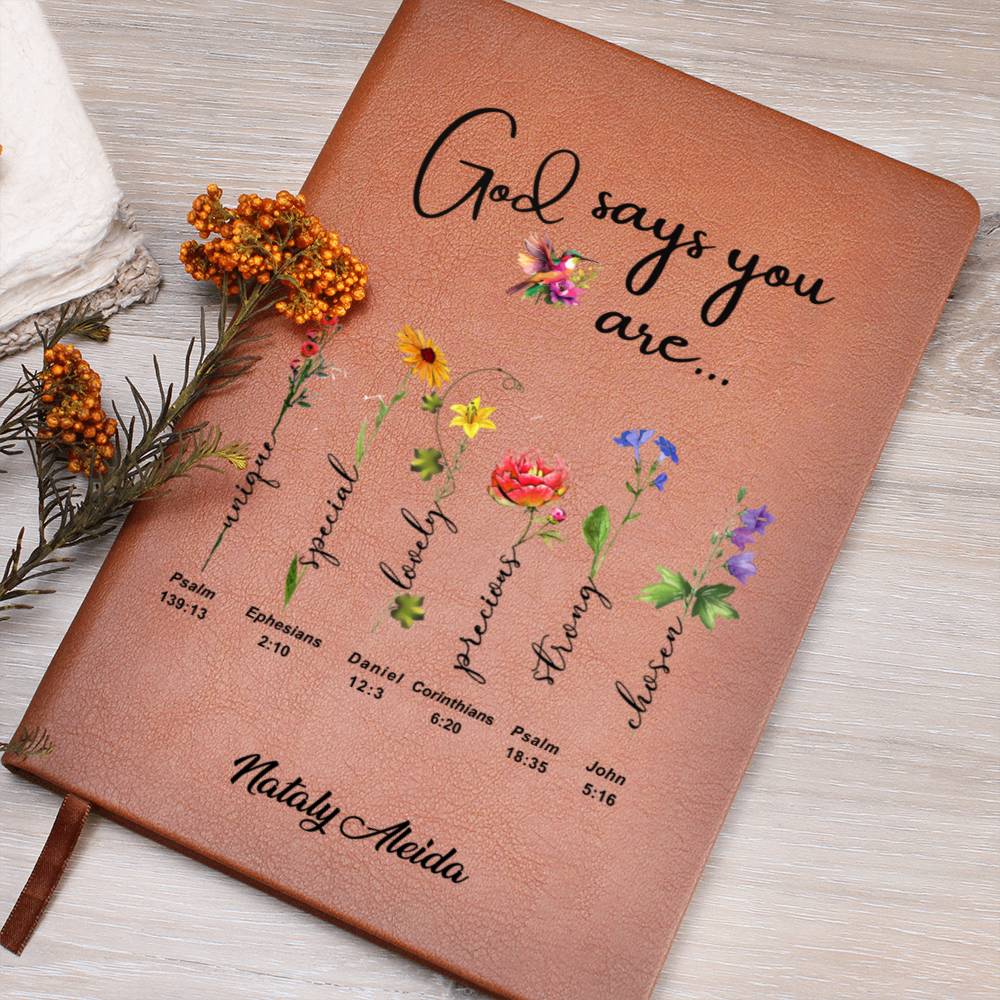 God says you
are...
unique
special
lovely
precious
strong
chosen
Psalm
139:13
Ephesians
2:10
Daniel
12:3
Corinthians
6:20
Psalm
18:35
John
5:16
Nataly Aleida